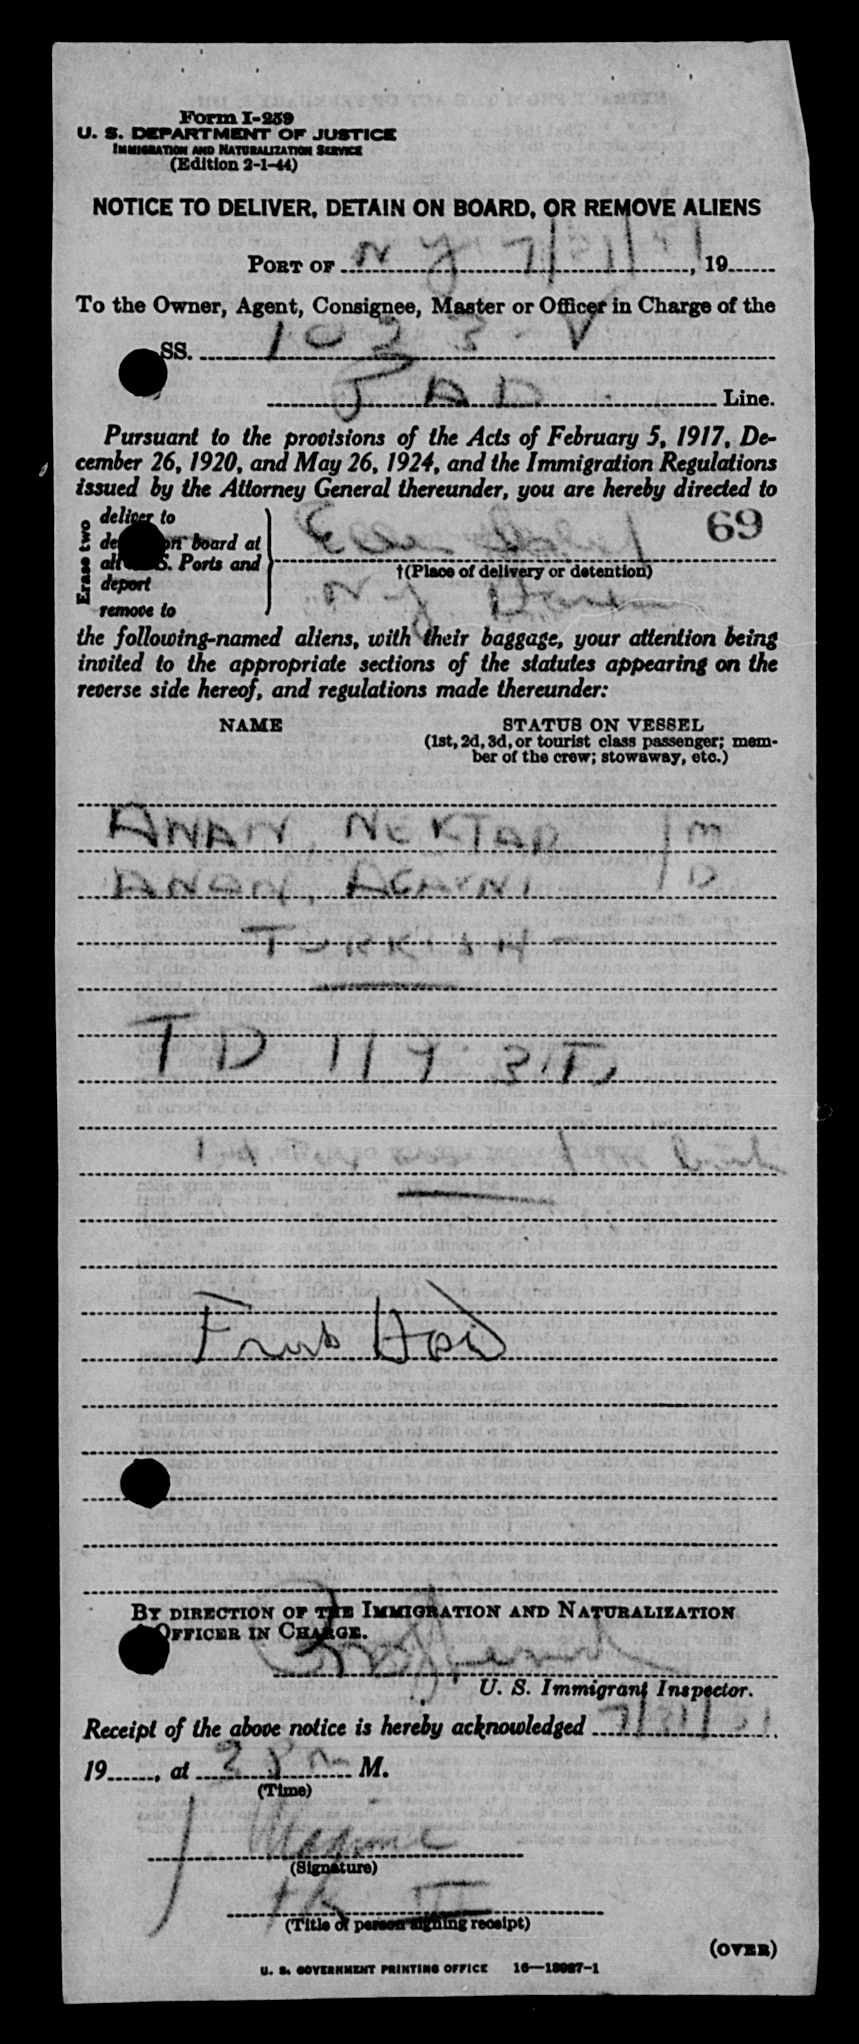 Form I-259
U. S. DEPARTMENT OF JUSTICE
IMMIGRATION AND NATURALIZATION SERVICE
(Edition 2-1-44)
NOTICE TO DELIVER, DETAIN ON BOARD, OR REMOVE ALIENS
PORT OF N Y 7/31/51, 19
To the Owner, Agent, Consignee, Master or Officer in Charge of the
SS. 1033-V
Line.
Pursuant to the provisions of the Acts of February 5, 1917, De-
cember 26, 1920, and May 26, 1924, and the Immigration Regulations
issued by the Attorney General thereunder, you are hereby directed to
Erase two
deliver to
on board at
Ports and
deport
remove to
Ellis Island
69
†(Place of delivery or detention)
N. Y.
the following-named aliens, with their baggage, your attention being
invited to the appropriate sections of the statutes appearing on the
reverse side hereof, and regulations made thereunder:
NAME
STATUS ON VESSEL
(1st, 2d, 3d, or tourist class passenger; mem-
ber of the crew; stowaway, etc.)
ANAN, NEKTAR M
ANAN, AGAVNI D
TURKISH
TD
By DIRECTION OF THE IMMIGRATION AND NATURALIZATION
OFFICER IN CHARGE.
U. S. Immigrant Inspector.
Receipt of the above notice is hereby acknowledged 7/31/51
19, at M.
(Time)
(Signature)
(Title of person signing receipt)
(OVER)
U. S. GOVERNMENT PRINTING OFFICE 16—18987-1